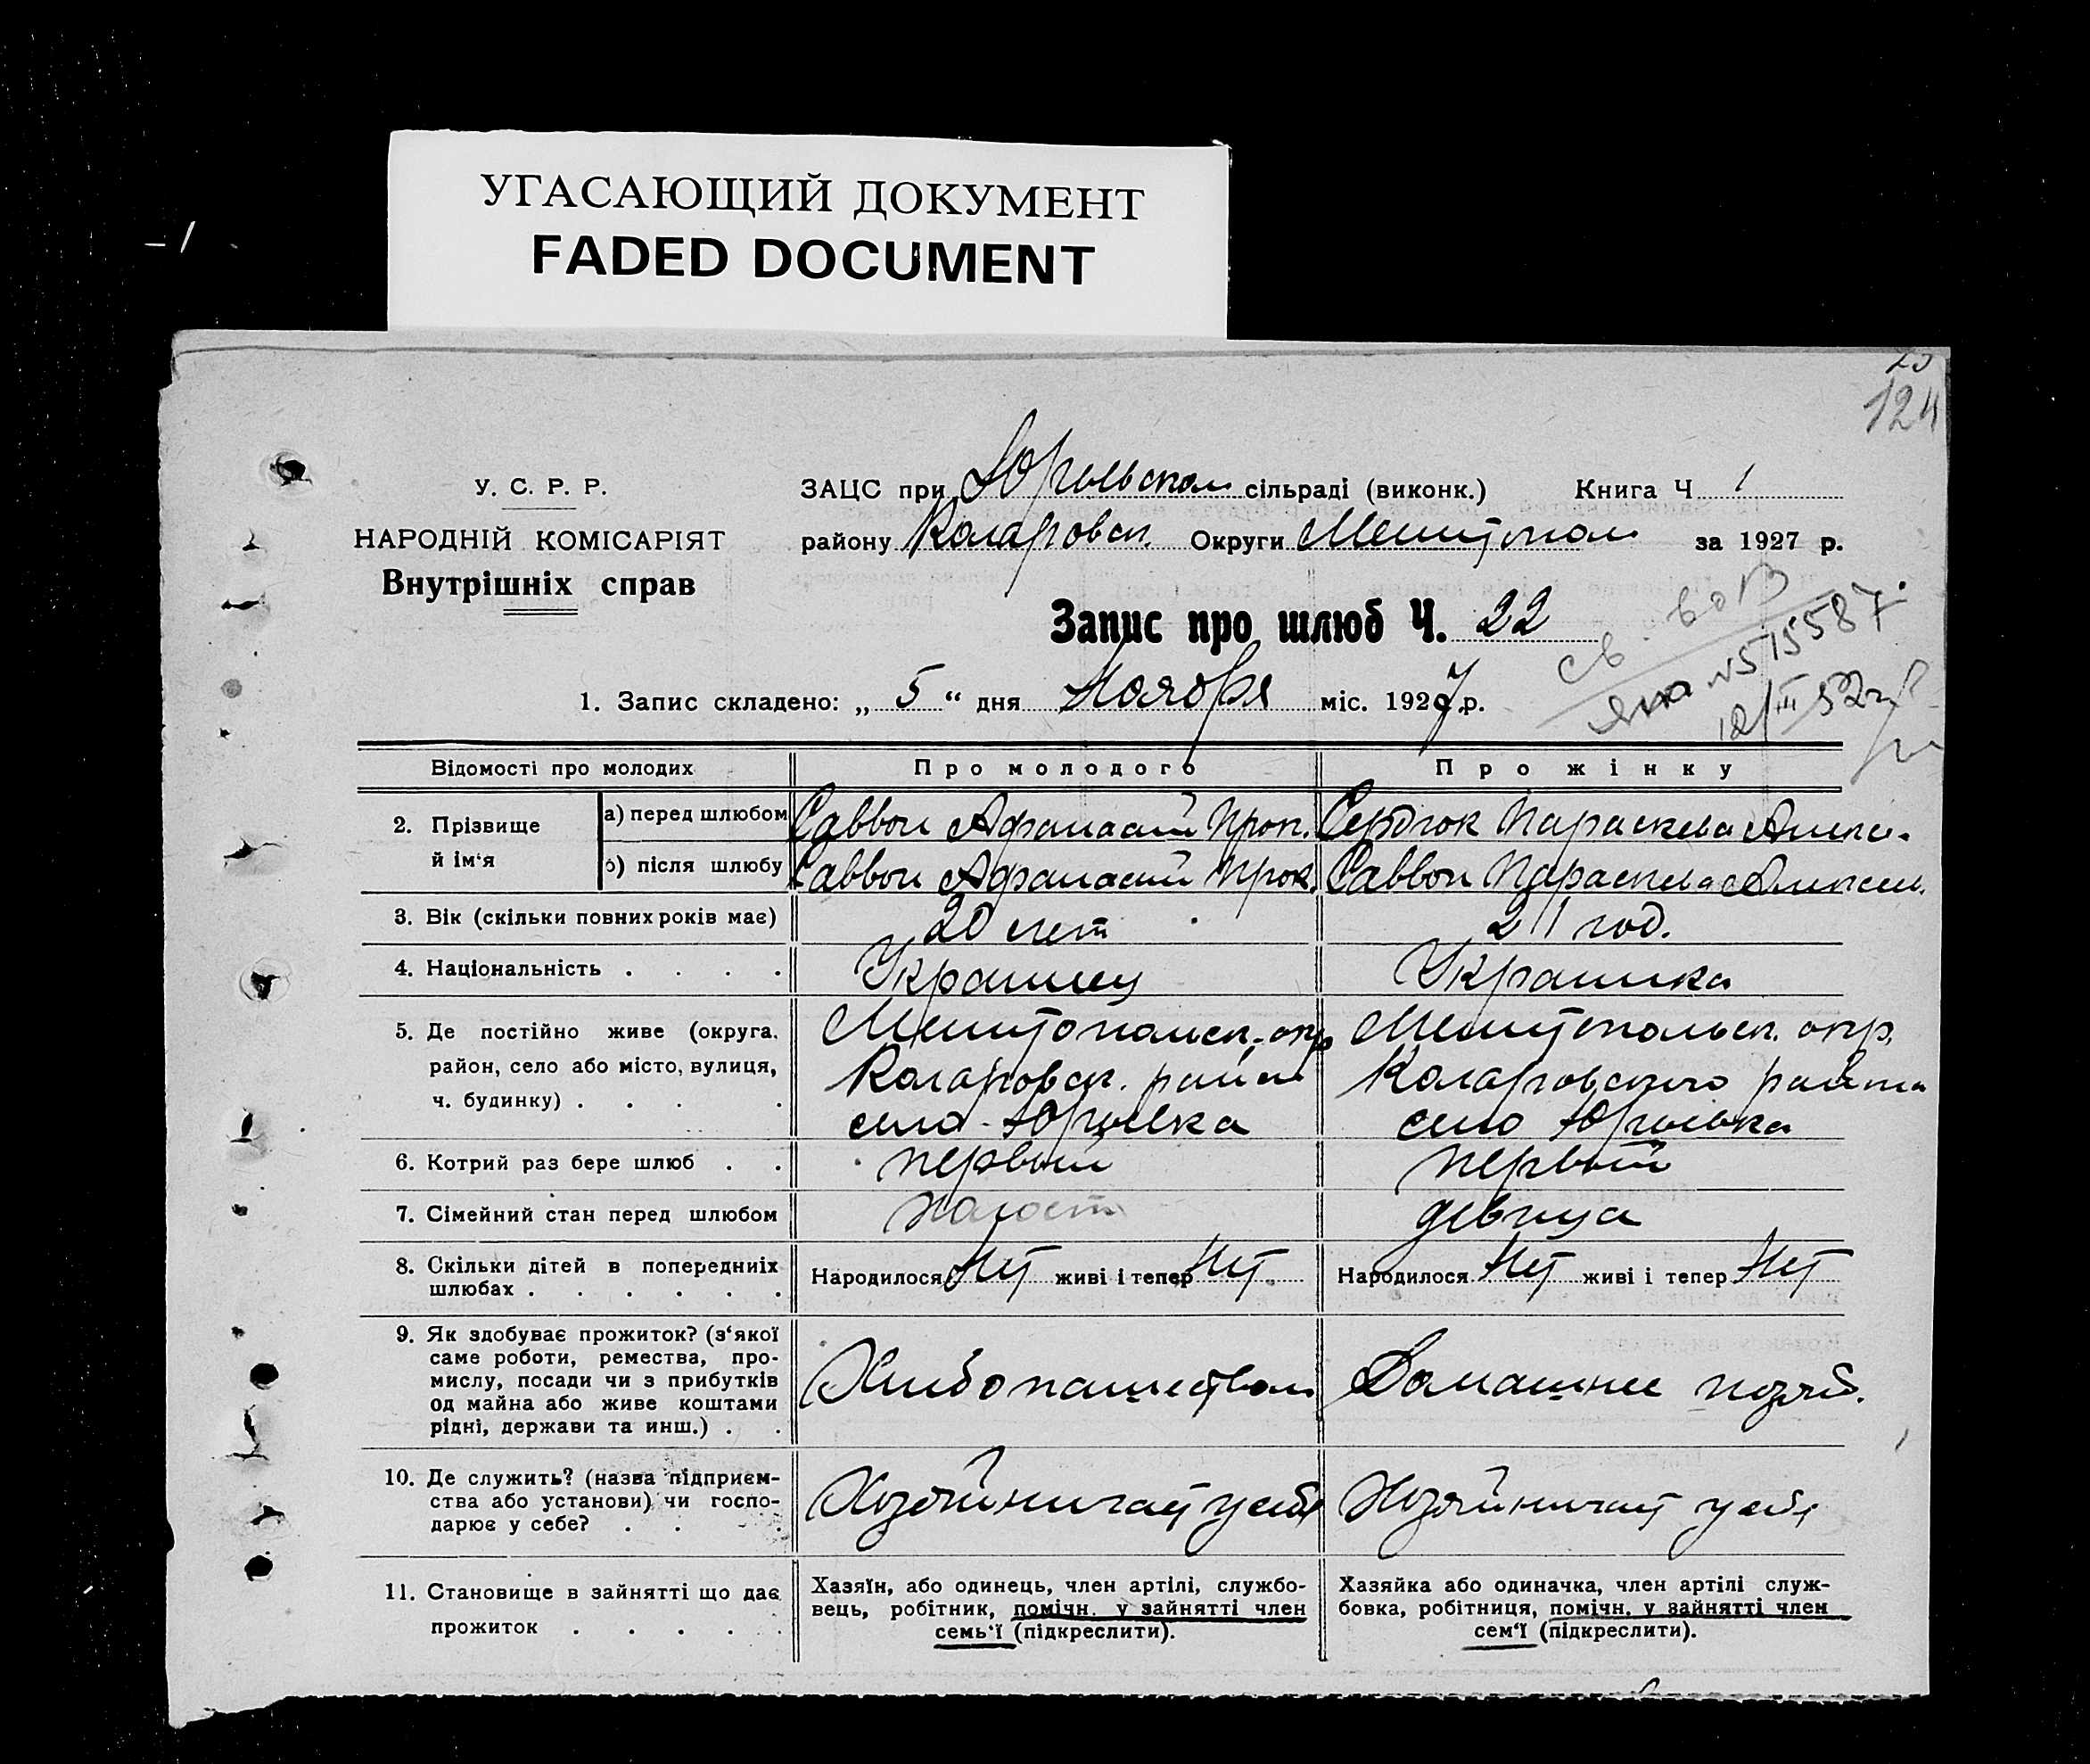 УГАСАЮЩИЙ ДОКУМЕНТ
FADED DOCUMENT
124
У. С. Р. Р.
НАРОДНІЙ КОМІСАРІЯТ
Внутрішніх справ
ЗАЦС при Юрьевском сільраді (виконк.) Книга Ч 1
району Коларовск. Округи Мелитопол за 1927 р.
Запис про шлюб Ч. 22
1. Запис складено: „ 5 “ дня Ноября міс. 1927 р.
св. во В
№ 515587
12/III 52 г
Відомості про молодих
Про молодого
Про жінку
2. Прізвище й ім‘я
а) перед шлюбом
Саввон Афанасий Прок.
Сердюк Параскева Алексе.
б) після шлюбу
Саввон Афанасий Прок.
Саввон Параскева Алексеев.
3. Вік (скільки повних років має)
20 лет
21 год.
4. Національність . . . .
Украинец
Украинка
5. Де постійно живе (округа,
район, село або місто, вулиця,
ч. будинку) . . . .
Мелитопольск. окр
Коларовск. район
село - Юрьевка
Мелитопольск. окр.
Коларовского района
село Юрьевка
6. Котрий раз бере шлюб . .
первый
первый
7. Сімейний стан перед шлюбом
холост
девица
8. Скільки дітей в попередніх
шлюбах . . . . . .
Народилося Нет живі і тепер Нет.
Народилося Нет живі і тепер Нет
9. Як здобуває прожиток? (з‘якої
саме роботи, ремества, про-
мислу, посади чи з прибутків
од майна або живе коштами
рідні, держави та инш.) . .
Хлебопашеством
Домашнее хозяй.
10. Де служить? (назва підприєм-
ства або установи) чи госпо-
дарює у себе? . . .
Хозяйничает у себя
Хозяйничает у себя
11. Становище в зайнятті що дає
прожиток . . . . .
Хазяїн, або одинець, член артілі, службо-
вець, робітник, помічн. у зайнятті член
семь‘ї (підкреслити).
Хазяйка або одиначка, член артілі служ-
бовка, робітниця, помічн. у зайнятті член
сем‘ї (підкреслити).